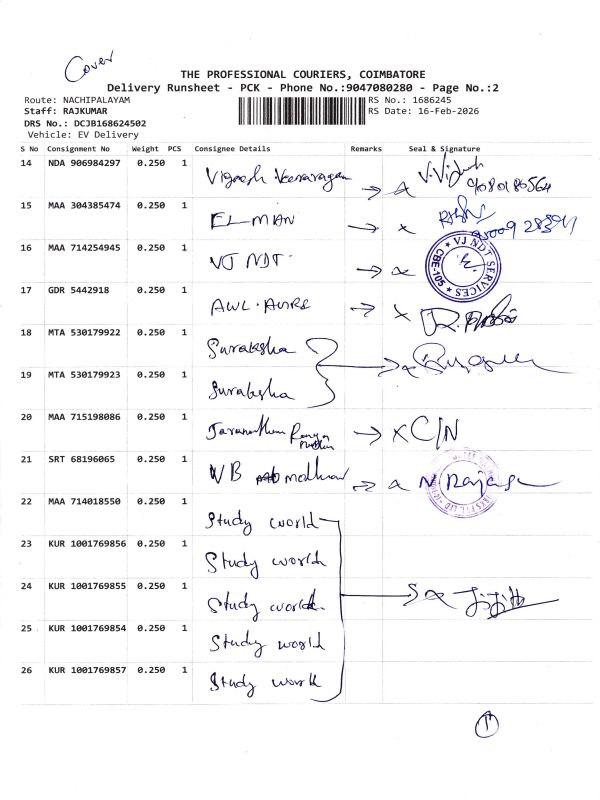 Cover
THE PROFESSIONAL COURIERS, COIMBATORE
Delivery Runsheet - PCK - Phone No.:9047080280 - Page No.:2
Route: NACHIPALAYAM RS No.: 1686245
Staff: RAJKUMAR RS Date: 16-Feb-2026
DRS No.: DCJB168624502
Vehicle: EV Delivery
S No Consignment No Weight PCS Consignee Details Remarks Seal & Signature
14 NDA 906984297 0.250 1 Vignesh
15 MAA 304385474 0.250 1 ELMAN
16 MAA 714254945 0.250 1 VJ NDT
VJ NDT SERVICES CBE-105
17 GDR 5442918 0.250 1 AWL.
18 MTA 530179922 0.250 1 Suraksha
19 MTA 530179923 0.250 1 Suraksha
20 MAA 715198086 0.250 1 C/N
21 SRT 68196065 0.250 1 WB
22 MAA 714018550 0.250 1 Study world
23 KUR 1001769856 0.250 1 Study world
24 KUR 1001769855 0.250 1 Study world
25 KUR 1001769854 0.250 1 Study world
26 KUR 1001769857 0.250 1 Study